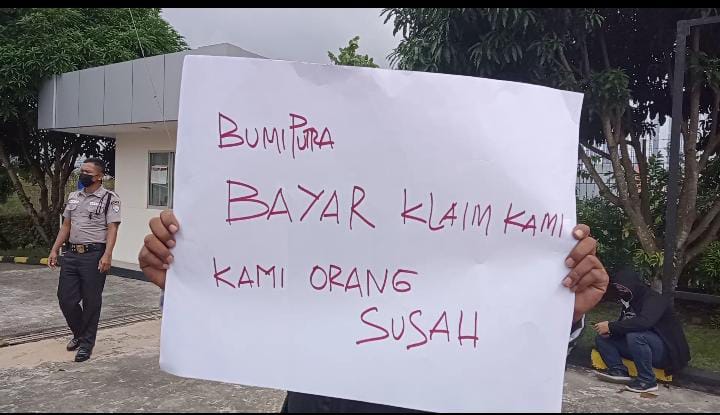 BUMIPUTRA
BAYAR KLAIM KAMI
KAMI ORANG
SUSAH